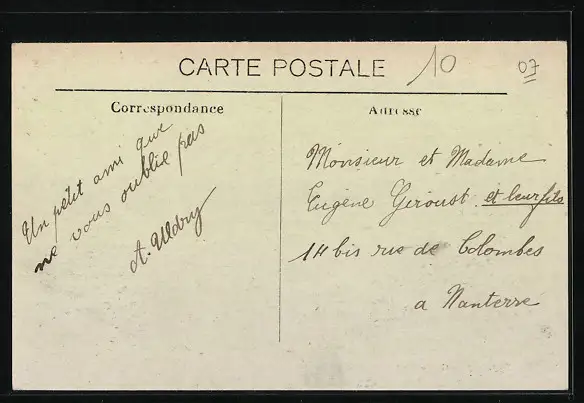 CARTE POSTALE
10
07
Correspondance
Adresse
Un petit ami que
ne vous oublie pas
A.
Monsieur et Madame
Eugène Geroust et leur fils
14 bis rue de Colombes
a Nanterre